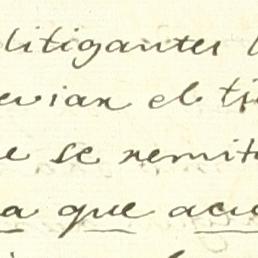 litigantes
evian el
e se remit
a que acu